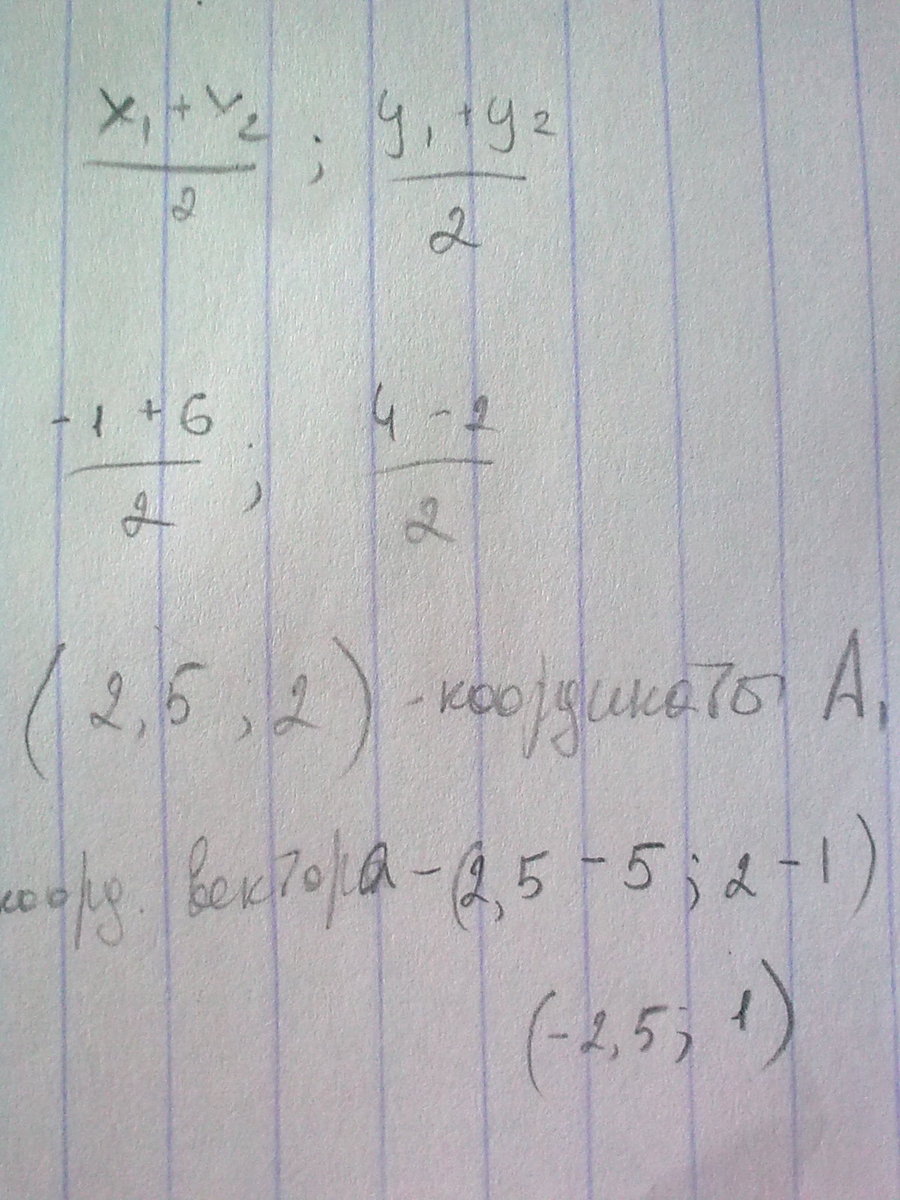 x₁ + x₂ / 2 ; y₁ + y₂ / 2
-1 + 6 / 2 ; 4 - 2 / 2
(2,5 , 2) - координаты A₁
коорд. вектора - (2,5 - 5 ; 2 - 1)
(-2,5 ; 1)